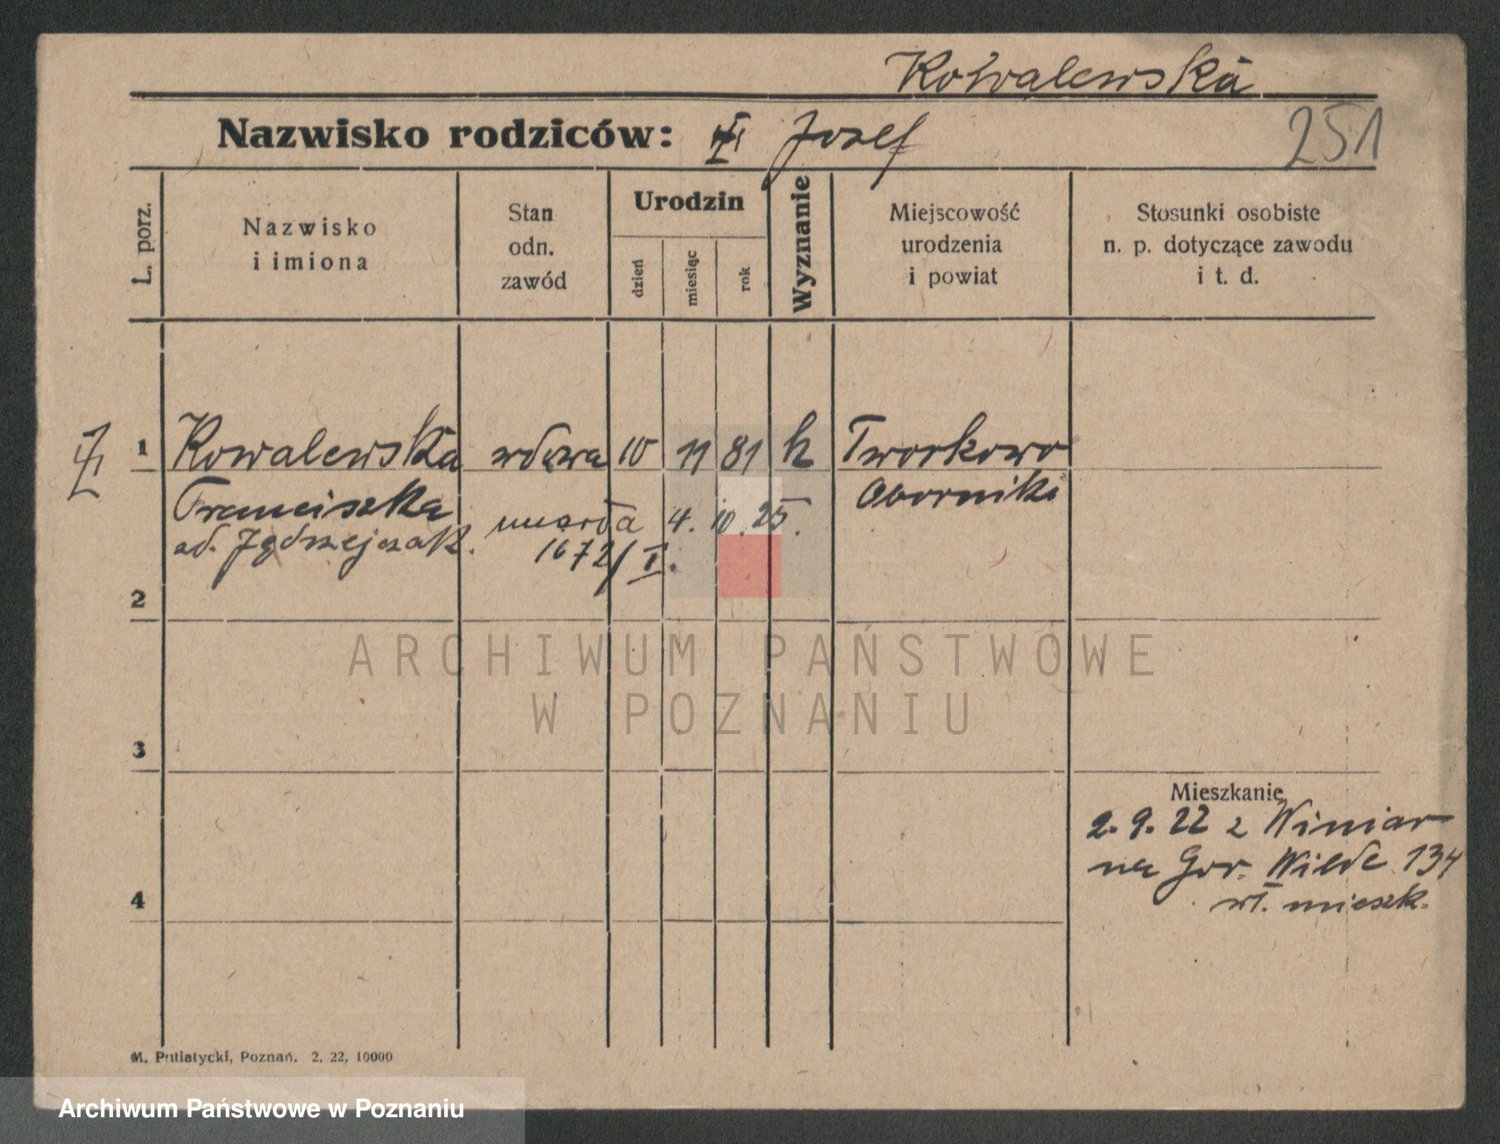 Kowalewska
Nazwisko rodziców: Jozef
251
L. porz.
Nazwisko
i imiona
Stan
odn.
zawód
Urodzin
dzień
miesiąc
rok
Wyznanie
Miejscowość
urodzenia
i powiat
Stosunki osobiste
n. p. dotyczące zawodu
i t. d.
1 Kowalewska wdowa 10 11 81 k Tworkowo
Franciszka Oborniki
umarła 4. 10. 25.
Jędrzejczak.
1672/I.
2
ARCHIWUM PAŃSTWOWE
W POZNANIU
3
Mieszkanie
2. 9. 22 z Winiar
na Gór. Wilde 134
wł. mieszk.
4
M. Putiatycki, Poznań. 2. 22. 10000
Archiwum Państwowe w Poznaniu